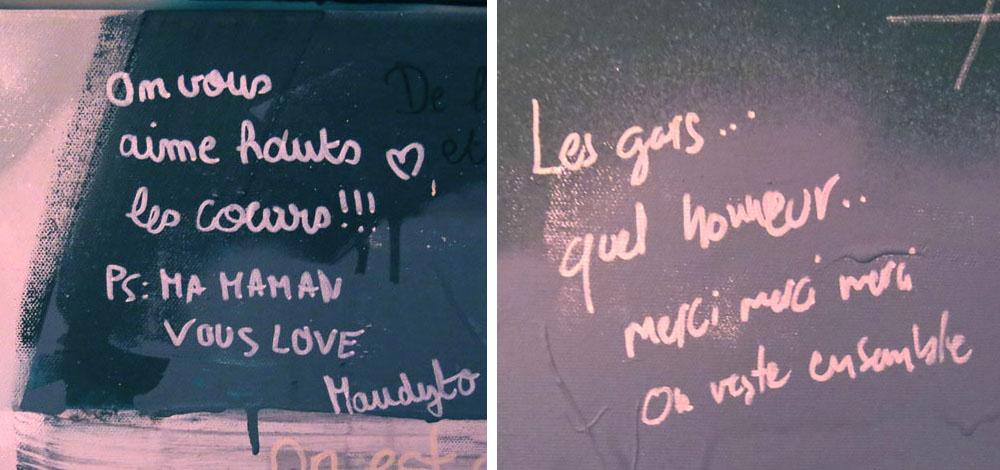 On vous
aime hauts
les cœurs!!!
PS: MA MAMAN
VOUS LOVE
Maudyto
De l
et
On est
Les gars...
quel honneur..
merci merci merci
On reste ensemble